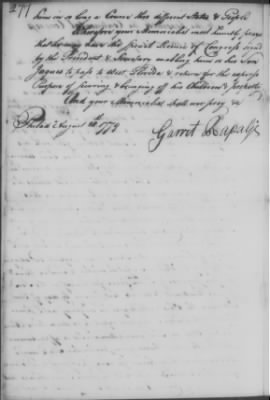 277
him in so long a Course thro different States & People
Therefore your Memorialist most humbly prays
that he may have the Permit Licence of Congress signed
by the President & Secretary enabling him or his Son
Jaques to pass to West Florida & return for the express
Purpose of securing & bringing of his Children & Property
And your Memorialist shall ever pray &c
Philada August 1779
Garrit Rapalje